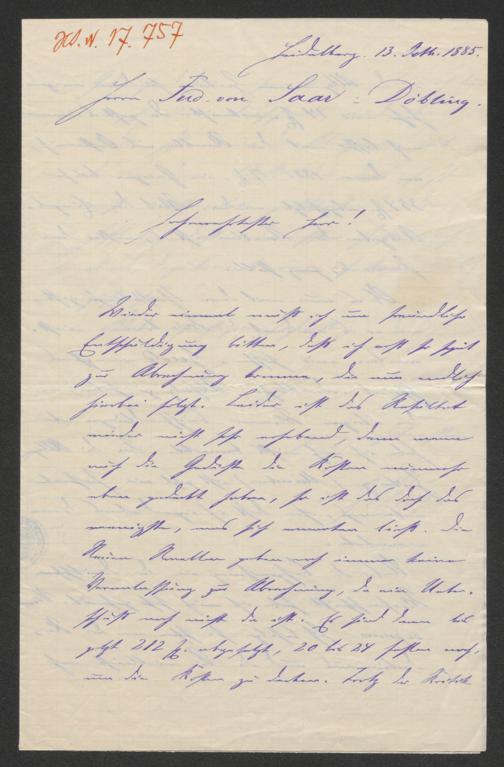 H.I.N. 17.757
Heidelberg, 13. Octb. 1885.
Herrn Ferd. von Saar : Döbling.
Hochverehrtester Herr!
Wieder einmal muß ich um freundliche
Entschuldigung bitten, daß ich erst so spät
zur Abrechnung komme, die nun endlich
hierbei folgt. Leider ist das Resultat
wieder nicht sehr erhebend, denn wenn
auch die Gedichte die Kosten nunmehr
eben gedeckt haben, so ist das doch das
wenigste, was sich erwarten ließ. Die
Novellen geben noch immer keine
Veranlassung zur Abrechnung, da ein Ueber-
schuß noch nicht da ist. Es sind denn bis
jetzt 212 Ex. abgesetzt, 20 bis 24 fehlen noch,
um die Kosten zu decken. Trotz der